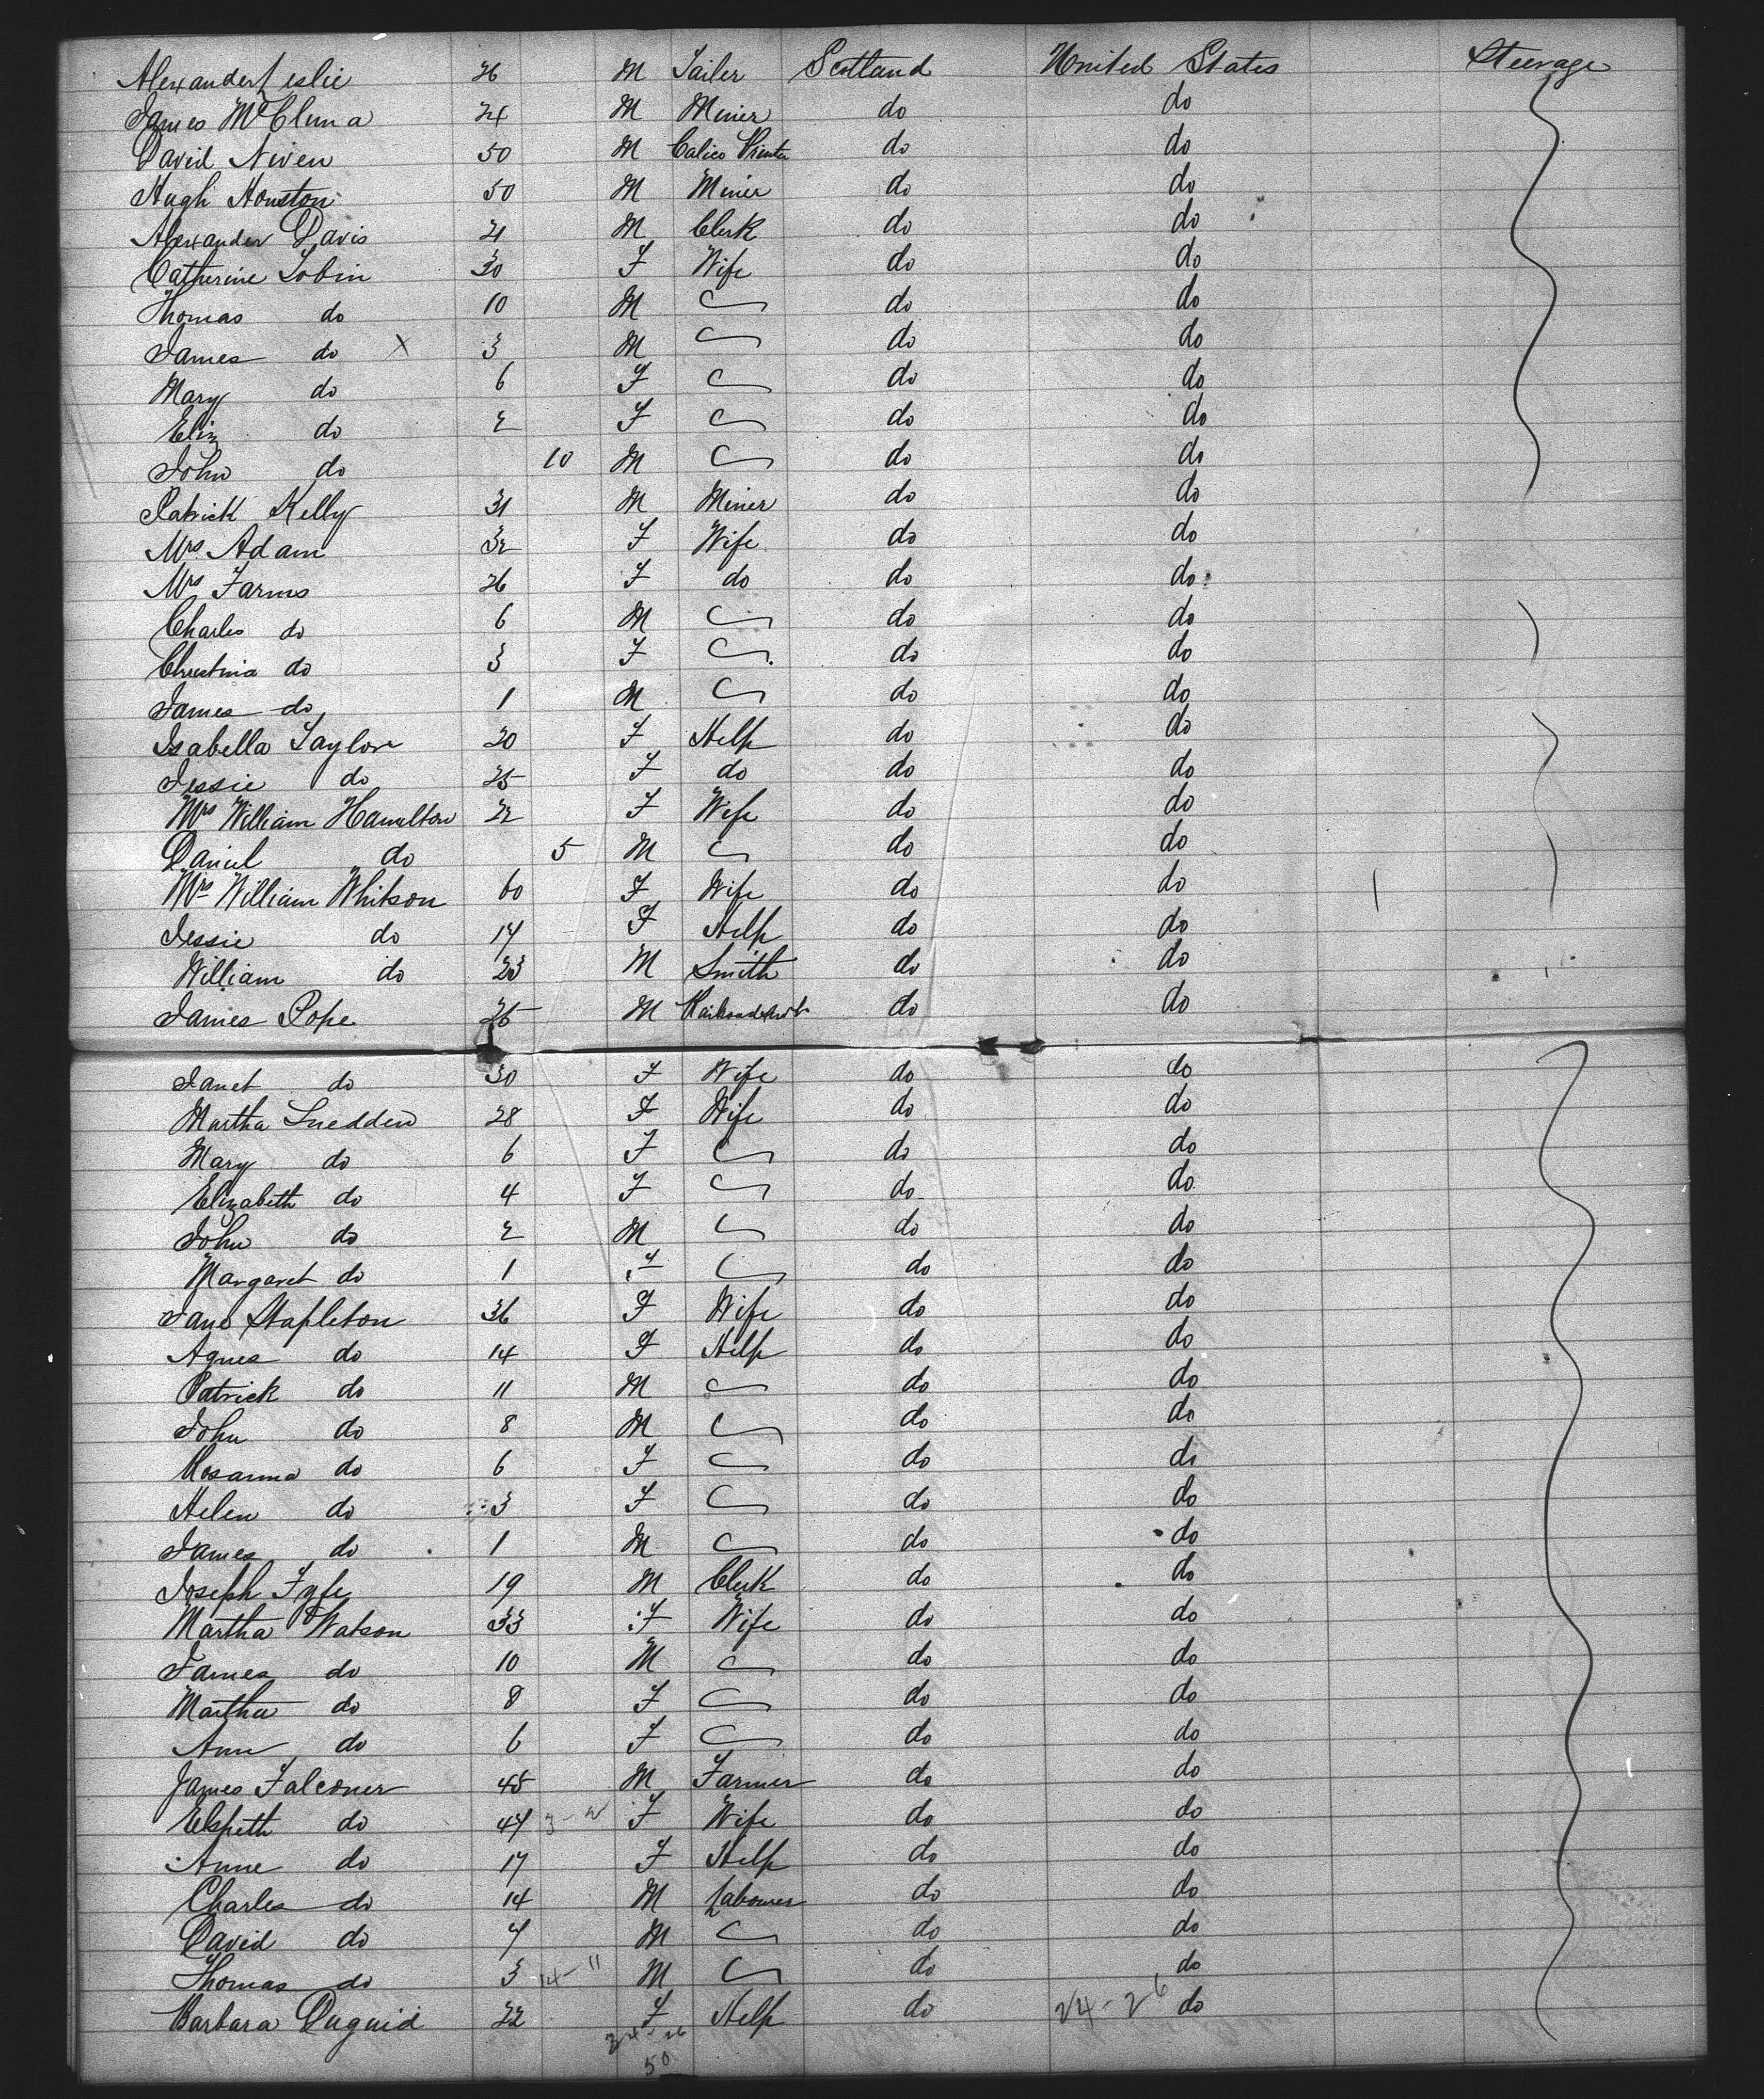 Alexander Leslie 26 M Tailer Scotland United States Steerage
James McCluna 24 M Miner do do
David Niven 50 M Calico Printer do do
Hugh Houston 50 M Miner do do
Alexander Davis 21 M Clerk do do
Catherine Tobin 30 F Wife do do
Thomas do 10 M do do
James do X 3 M do do
Mary do 6 F do do
Eliz do 2 F do do
John do 10 M do do
Patrick Kelly 31 M Miner do do
Mrs Adam 32 F Wife do do
Mrs Farms 26 F do do do
Charles do 6 M do do
Christina do 3 F do do
James do 1 M do do
Isabella Taylor 20 F Help do do
Jessie do 25 F do do do
Mrs William Hamilton 22 F Wife do do
Daniel do 5 M do do
Mrs William Whitson 60 F Wife do do
Jessie do 14 F Help do do
William do 23 M Smith do do
James Pope 25 M do do
Janet do 30 F Wife do do
Martha Snedden 28 F Wife do do
Mary do 6 F do do
Elizabeth do 4 F do do
John do 2 M do do
Margaret do 1 F do do
Jane Stapleton 36 F Wife do do
Agnes do 14 F Help do do
Patrick do 11 M do do
John do 8 M do do
Rosanna do 6 F do do
Helen do 3 F do do
James do 1 M do do
Joseph Fyfe 19 M Clerk do do
Martha Watson 33 F Wife do do
James do 10 M do do
Martha do 8 F do do
Ann do 6 F do do
James Falconer 45 M Farmer do do
Elspeth do 47 F Wife do do
Anne do 17 F Help do do
Charles do 14 M Labourer do do
David do 7 M do do
Thomas do 3 14-11 M do do
Barbara Duguid 22 F Help do 24-26 do
24-26
50